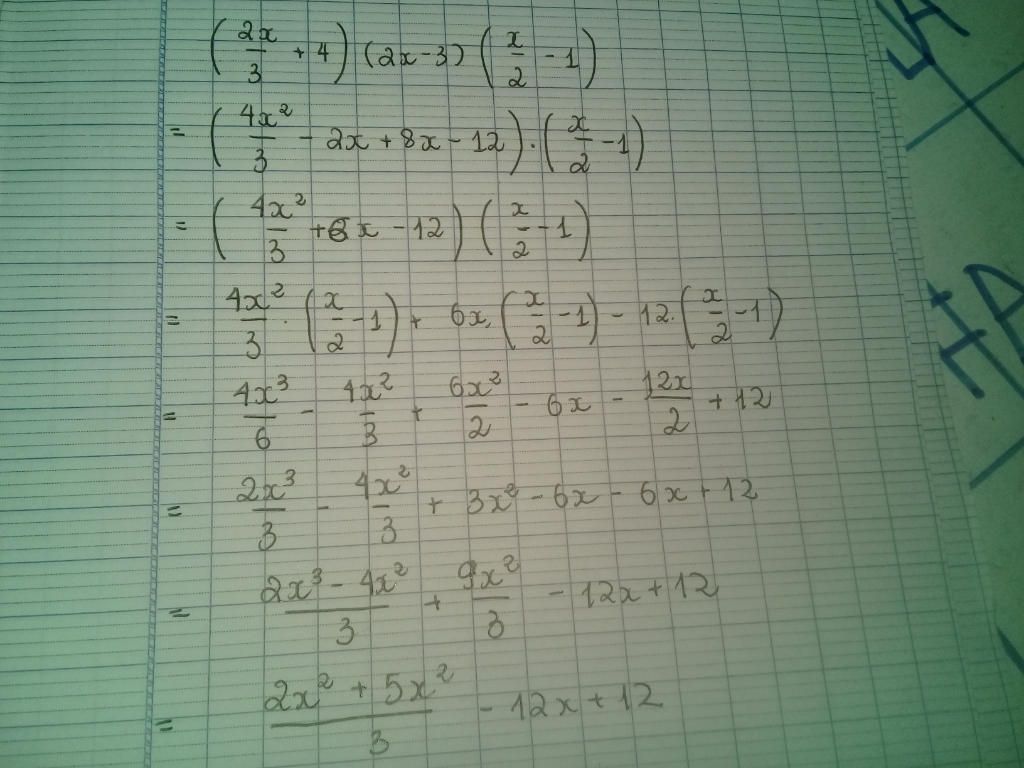 (2x/3 + 4) (2x-3) (x/2 - 1)
= (4x²/3 - 2x + 8x - 12) · (x/2 - 1)
= (4x²/3 + 6x - 12) (x/2 - 1)
= 4x²/3 · (x/2 - 1) + 6x · (x/2 - 1) - 12 · (x/2 - 1)
= 4x³/6 - 4x²/3 + 6x²/2 - 6x - 12x/2 + 12
= 2x³/3 - 4x²/3 + 3x² - 6x - 6x + 12
= (2x³ - 4x²)/3 + 9x²/3 - 12x + 12
= (2x² + 5x²)/3 - 12x + 12